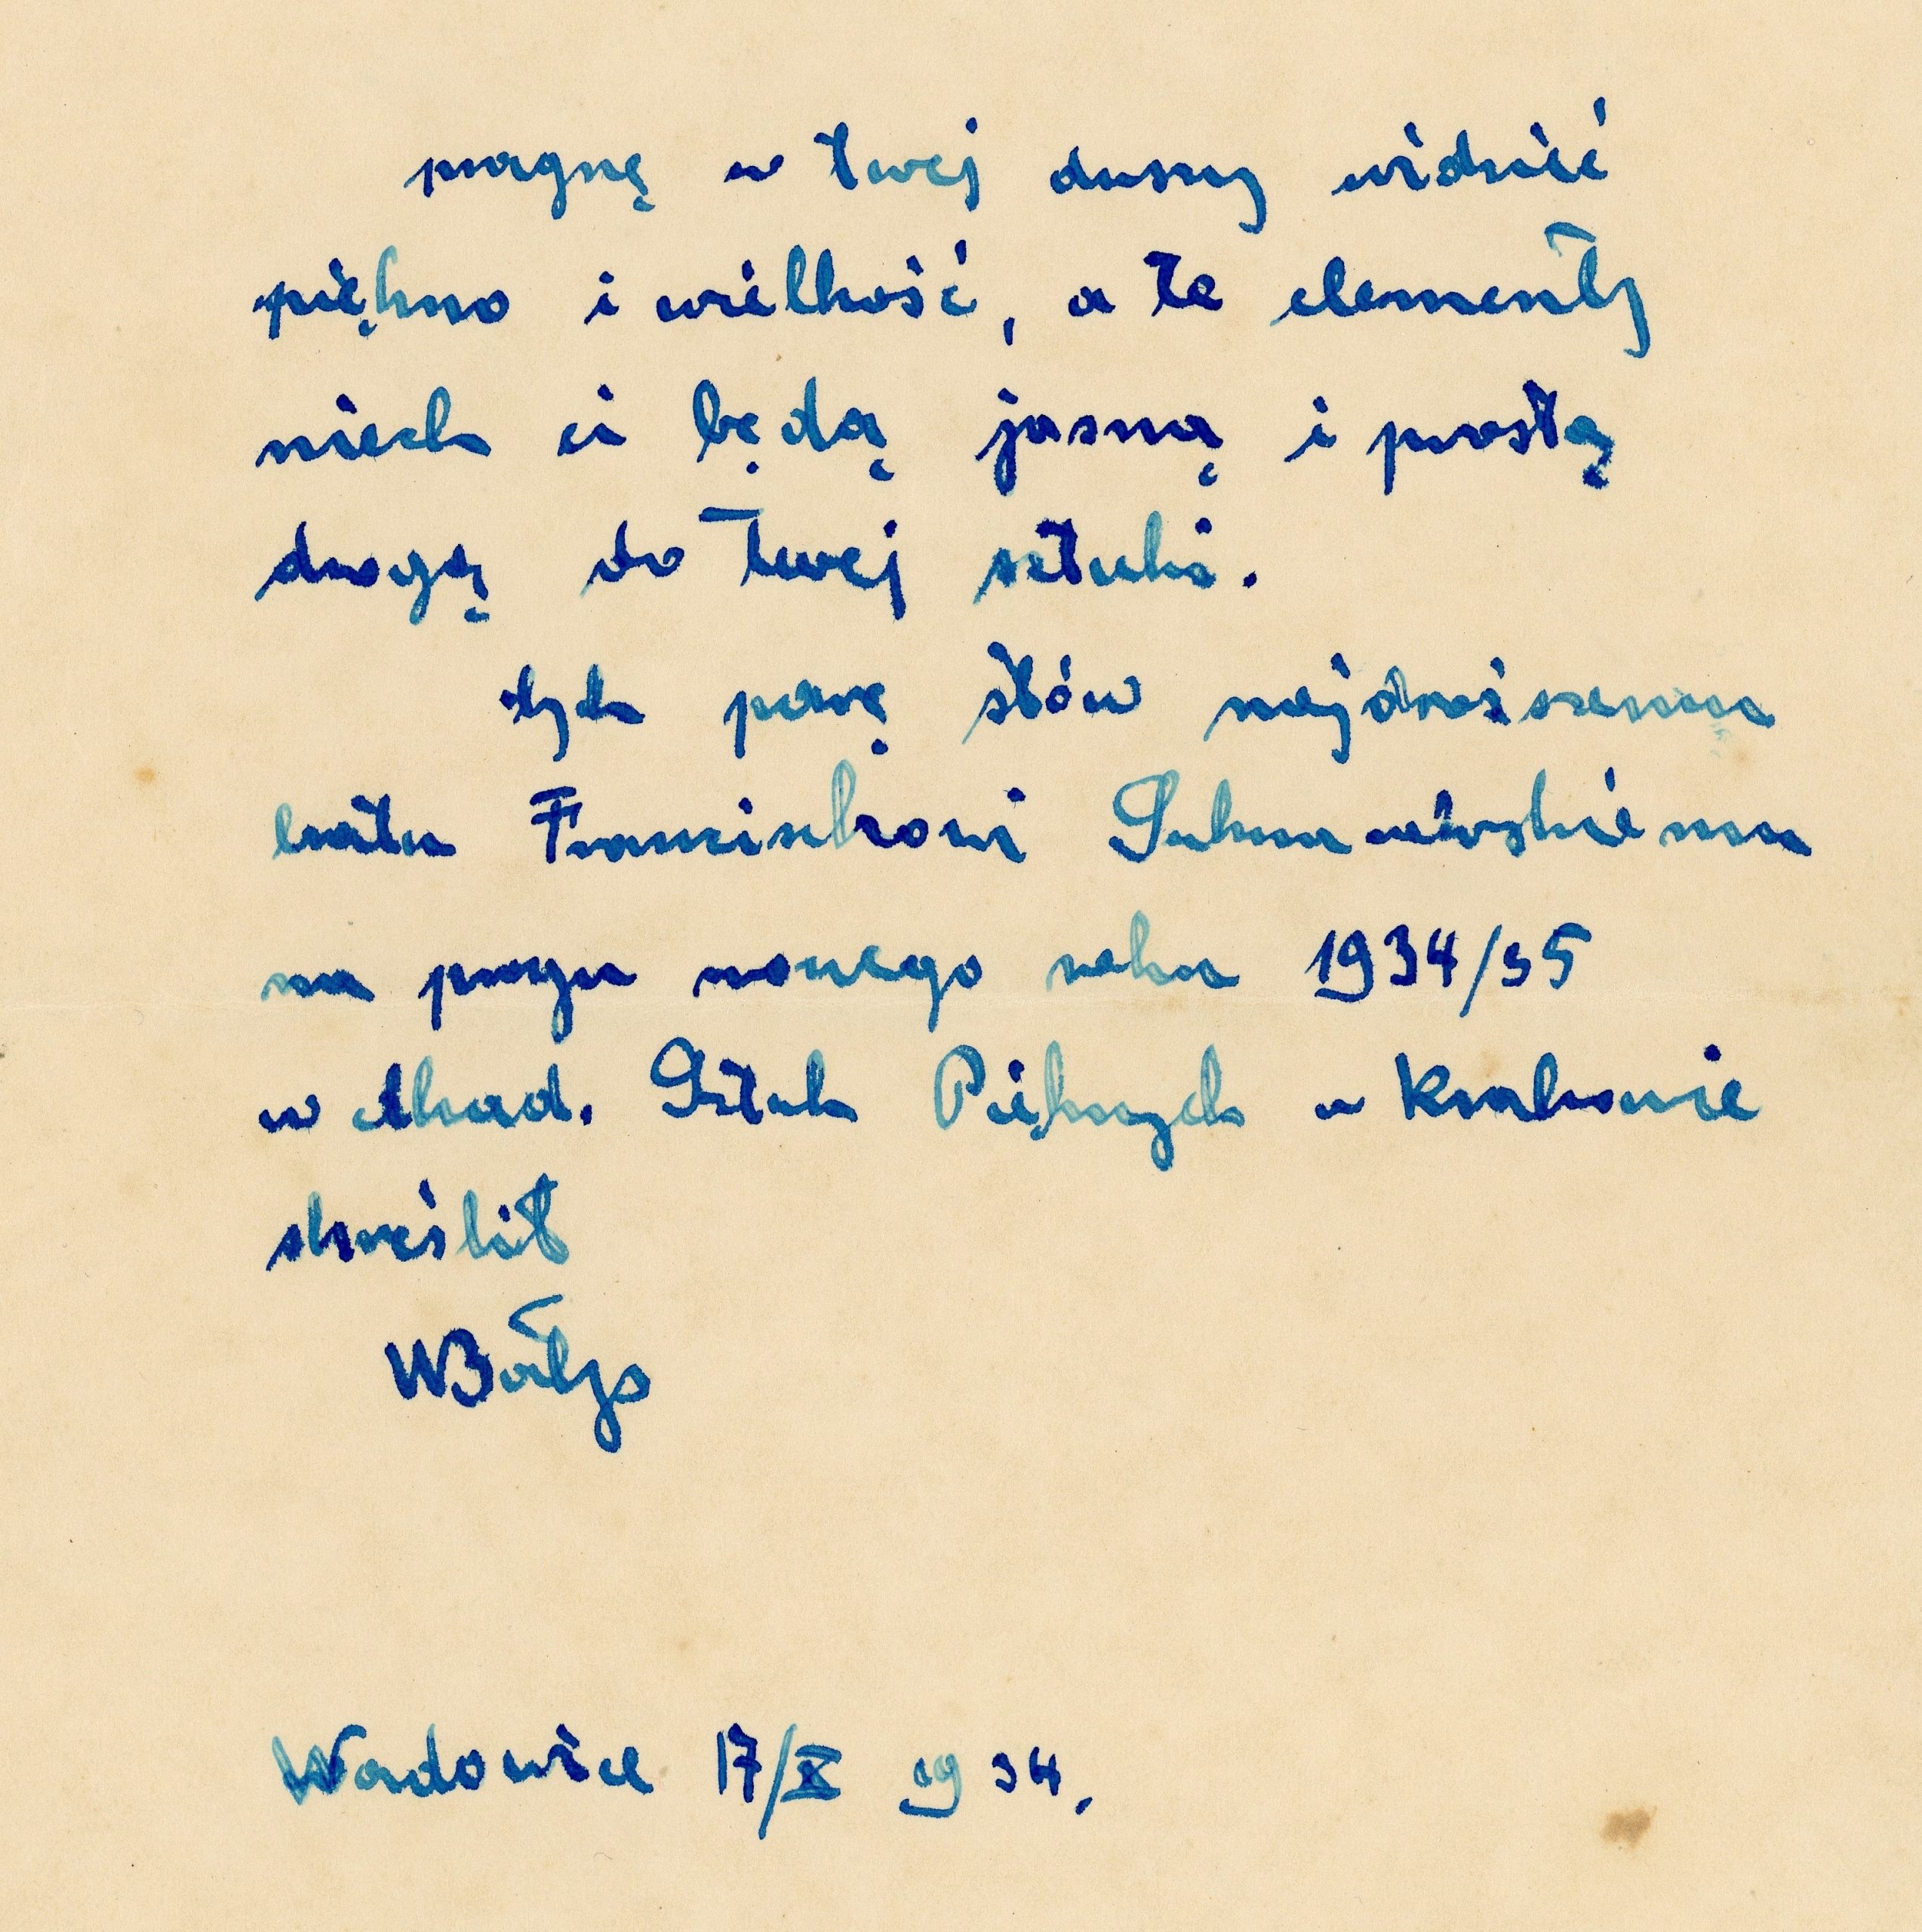 pragnę w twej duszy widzieć
piękno i wielkość, a te elementy
niech ci będą jasną i prostą
drogą do twej sztuki.
tych parę słów najdroższemu
bratu Franciszkowi Suknarowskiemu
na progu nowego roku 1934/35
w Akad. Sztuk Pięknych w Krakowie
skreślił
WBałys
Wadowice 17/X 1934.